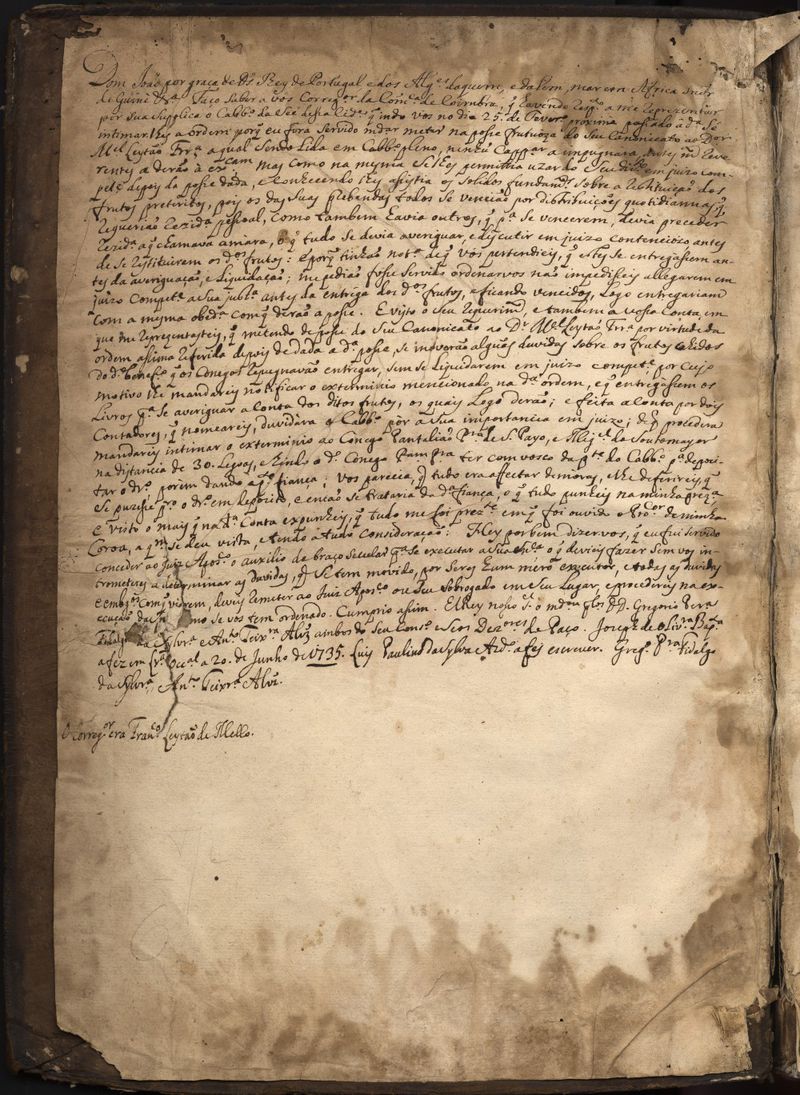 Dom João por graça de Ds. Rey de Portugal e dos Alges. daquem, e dalem, mar em Africa Snor
de Guiné &ra. Faço saber a vós Corregor. da Comca. de Coimbra, q havendo respto. a me representar
por sua supplica o Cabbo. da Sé dessa Cide. q indo vos no dia 25. de Fevero. proximo passado á da. Sé
intimarlhes a ordem porq eu fora servido mdar meter na posse frutuoza do seu Canonicato ao Dor.
Mel. Leytão Frra. a qual sendo lida em Cabbo. pleno, nenhũ
rentes a derão á exam. mas como na mesma se lhes permittia uzar do seu dirto. em juizo com-
pete. depois da posse dada, e conhecendo lhes assistia os solidos fundamtos. sobre a restituição dos
frutos preteritos, pois os das suas prebendas todos se vencião por distribuições quotidianas, q
requerião rezida. pessoal, como tambem havia outros, q pa. se vencerem, devia preceder
rezida. a q chamava amara, o q tudo se devia averiguar, e discutir em juizo contencioso antes
de se restituirem os dos. frutos: e porq tinhão nota. de q vós pertendieis, q estes se entregassem an-
tes da averiguação, e liquidação; me pedião fosse servido ordenarvos não impedisseis allegarem em
juizo compete. a sua justa. antes da entrega dos dos. frutos, e ficando vencidos, logo entregarião
com a mesma obeda. com q derão a posse. E visto o seu requerimto. e tambem a vossa conta, em
que me representasteis, q metendo de posse do seu Canonicato ao Dr. Mel. Leytão Frra. por virtude da
ordem assima referida depois de dada a da. posse, se moverão alguãs duvidas sobre os frutos cahidos
do do. benefo. q os Conegos repugnavão entregar, sem se liquidarem em juizo compete. por cujo
motivo lhe mandareis notificar o exterminio mencionado na da. ordem, e q entregassem os
livros pa. se averiguar a conta dos ditos frutos, os quais logo derão; e feita a conta por dois
Contadores, q nomeareis, duvidara o Cabbo. pôr a sua importancia em juizo; de q procedera
mandareis intimar o exterminio ao Conego Pantalião Pra. de S. Payo, e Migel. de Soutomayor
na distancia de 30. legoas, e vindo o do. Conego ter com vosco da pte. do Cabbo. pa. depozi-
tar o dro. porem dando a qe. fiança; vos parecia, q tudo era affectar demoras, e lhe defirireis q
se puzesse po. o dro. em deposito, e entao se trataria da da. fiança, o q tudo punheis na minha preza.
E visto o mais q na da. Conta expunheis, q tudo me foi prezte. em q foi ouvido o Pror. de minha
Coroa, a qm. se deu vista, e tendo a tudo consideração: Hey por bem dizervos, q eu fui servido
conceder ao Juiz Aposo. o auxilio de braço secular pa. se executar a sua snça. o q devieis fazer sem vos in-
trometeres a determinar as duvidas, q se tem movido, por seres hum mero executor, e todas as duvidas
e embos. com q vierem, deveis remeter ao Juiz Aposo. ou seu sobrogado em seu lugar, e procedereis na exe-
cução da como se vos tem ordenado. Cumprio assim. ElRey nosso Sr. o mdou pellos DD. Gregorio Pera.
Fidalgo da Sylvra. e Anto. Teixra. Alvz ambos do seu Conso. e seos Dezores. do Paço. Joseph de Olivra. Bapta.
a fez em Lxa. Occal. a 20. de Junho de 1735. Luis Paulino da Sylva Azdo. a fez escrever. Grego. Pra. Fidalgo
da Sylvra. Anto. Teixra. Alvz.
O Corregor. era Frano. Leytão de Mello.